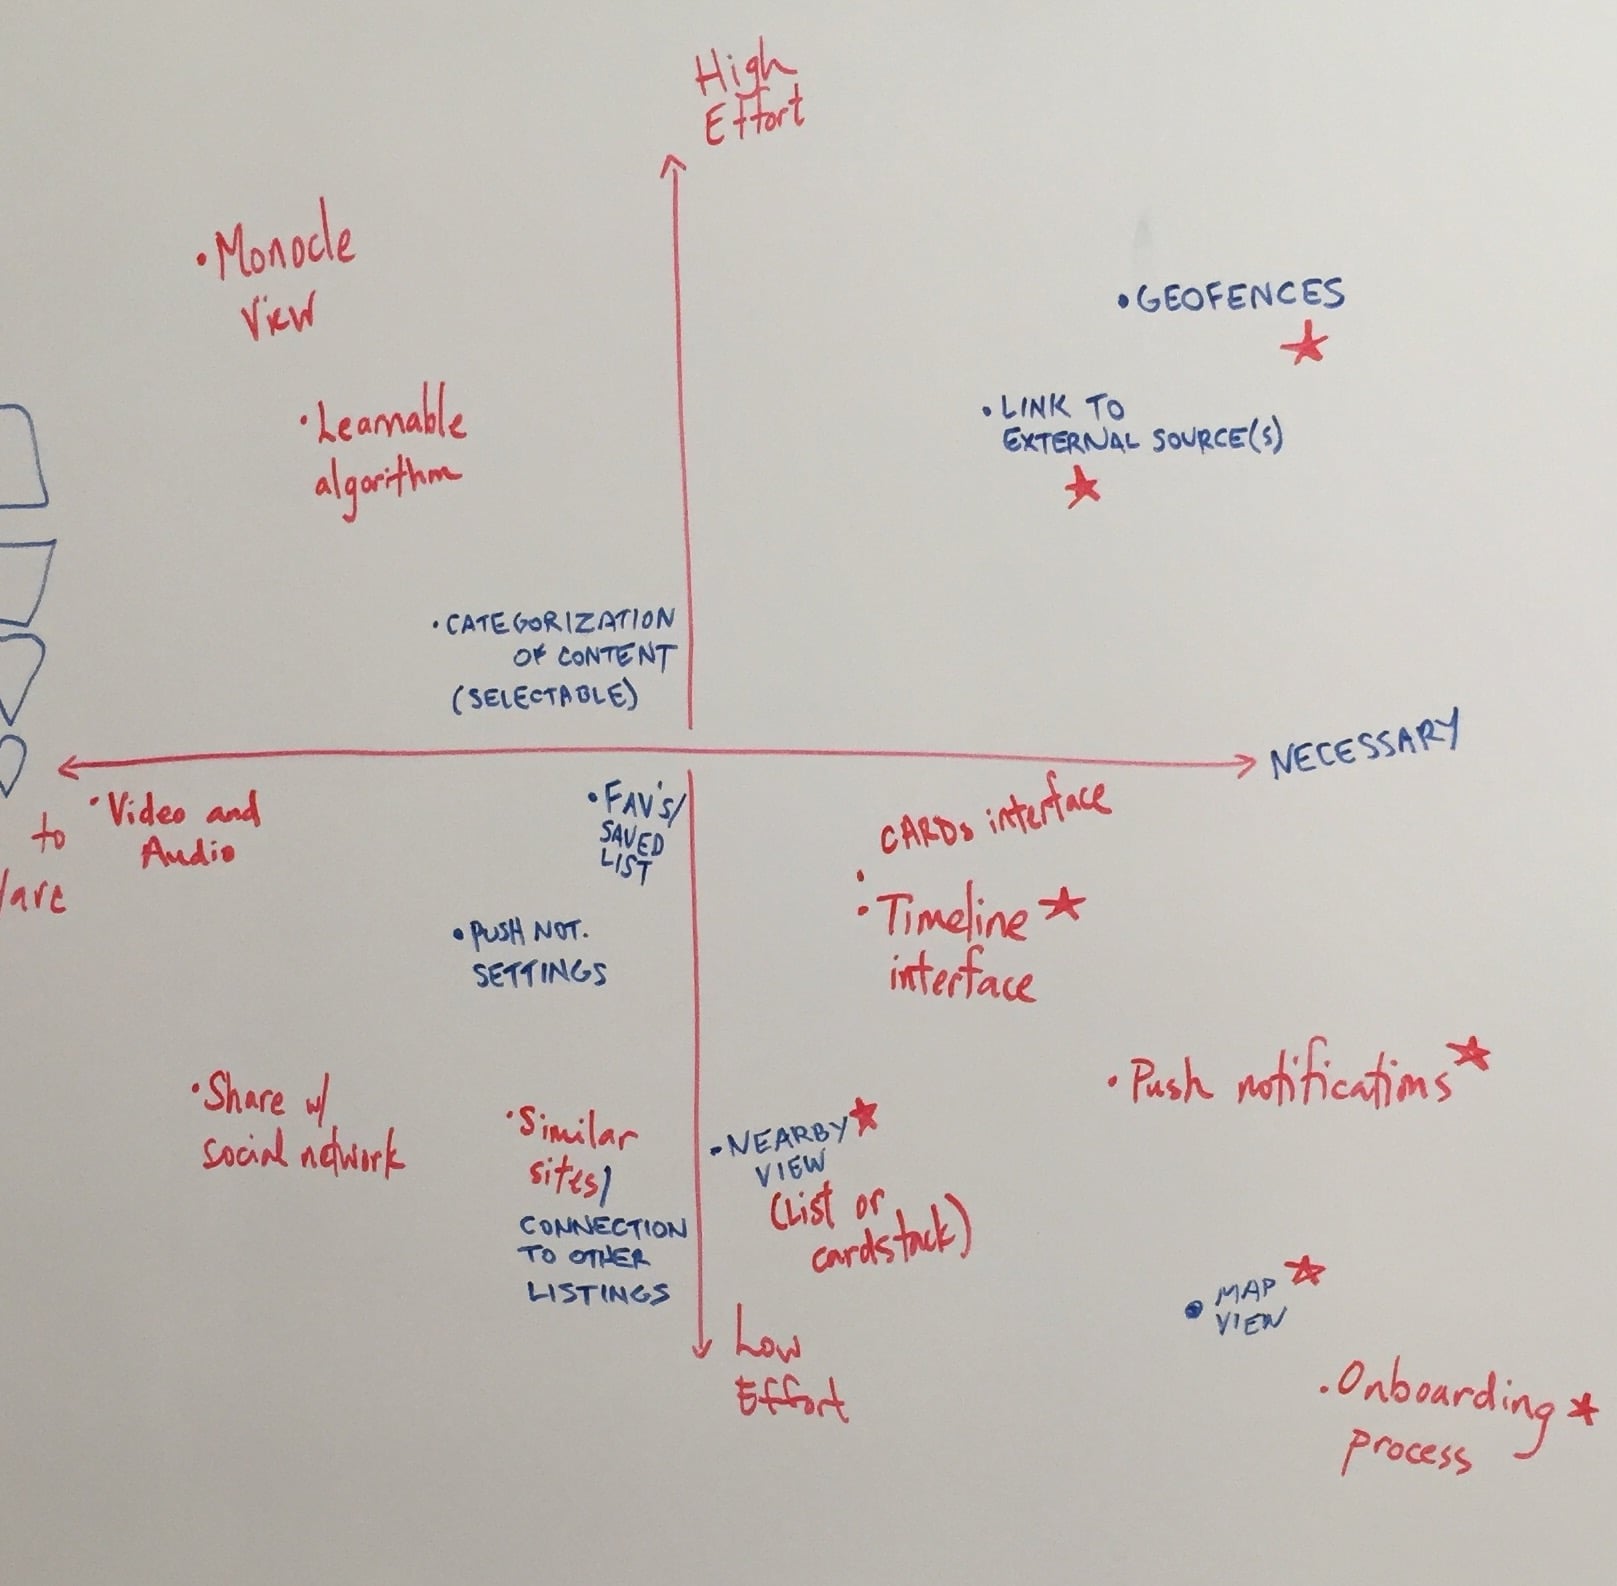 High
Effort
• Monocle
View
• GEOFENCES
• Learnable
algorithm
• LINK TO
EXTERNAL SOURCE(S)
• CATEGORIZATION
OF CONTENT
(SELECTABLE)
NECESSARY
• Video and
Audio
to
• FAV'S/
SAVED
LIST
CARDS interface
• Timeline
interface
• PUSH NOT.
SETTINGS
• Push notifications
• Share w/
social network
• Similar
sites/
CONNECTION
TO OTHER
LISTINGS
• NEARBY
VIEW
(List or
cardstack)
• MAP
VIEW
Low
Effort
• Onboarding
process